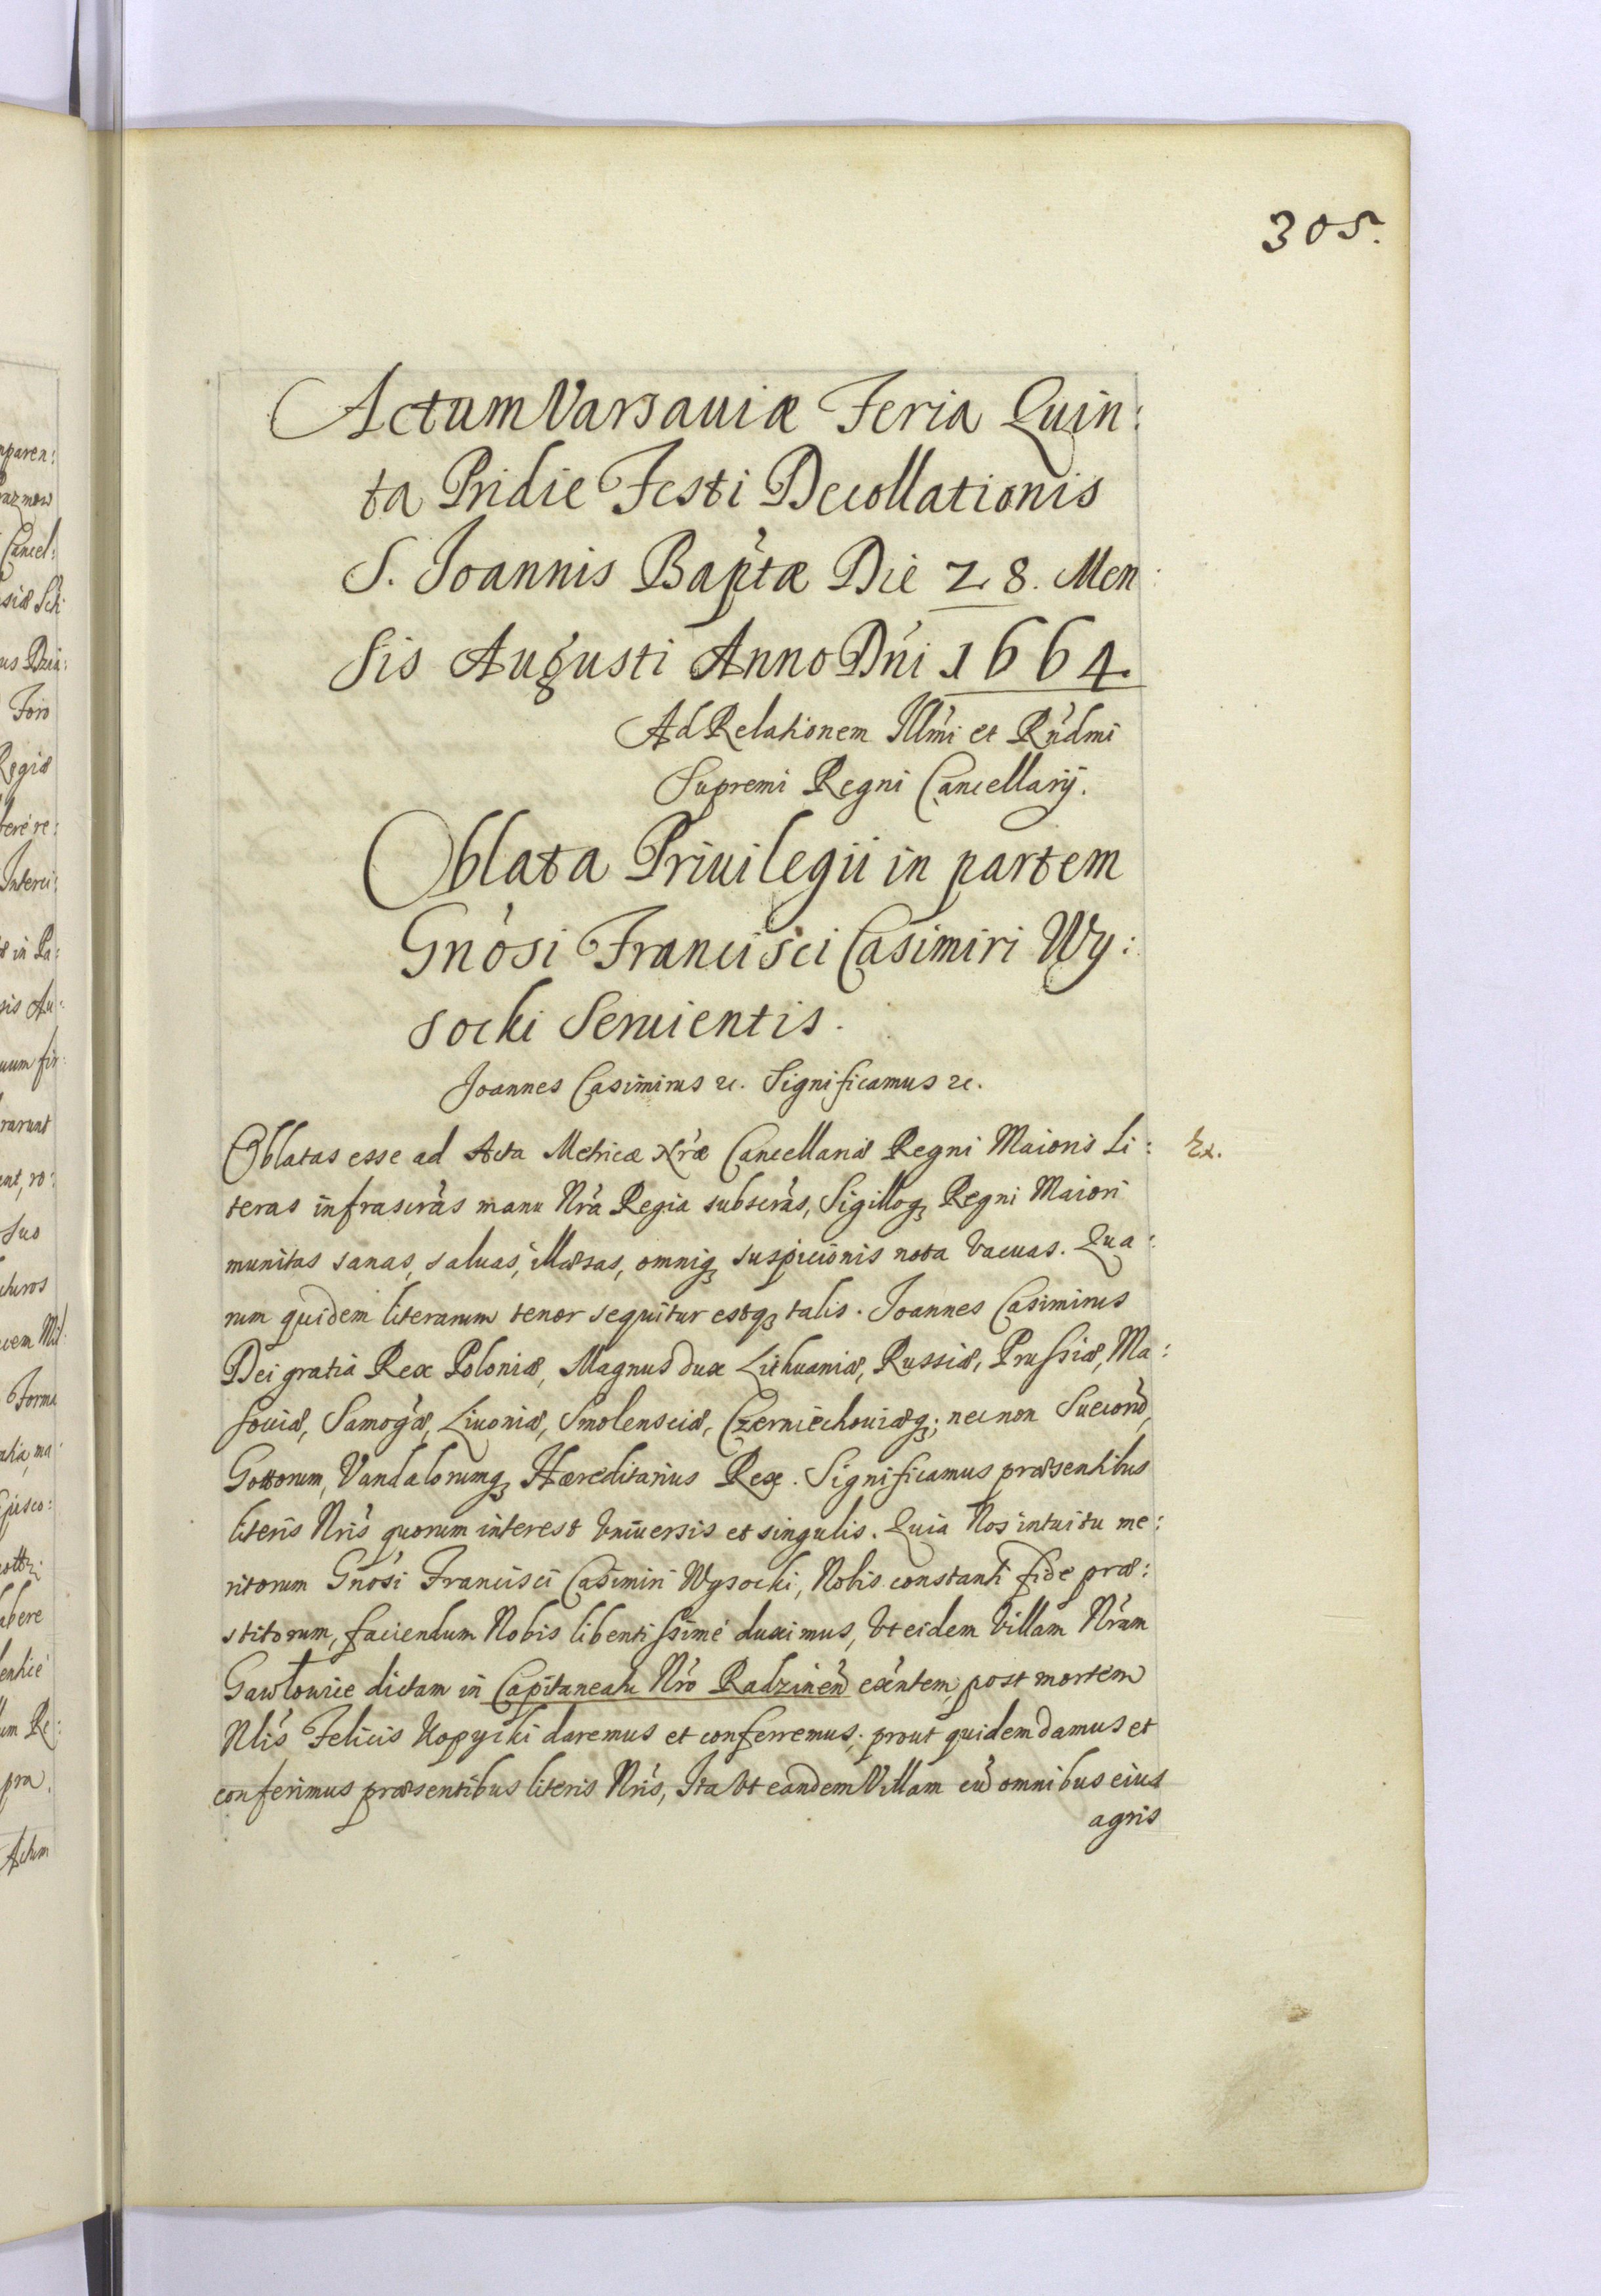 305.
Actum Varsauiæ Feria Quin:
ta Pridie Festi Decollationis
S. Joannis Baptæ Die 28. Men:
sis Augusti Anno Dni 1664.
Ad Relationem Illmi et Rndmi
Supremi Regni Cancellarij.
Oblata Priuilegii in partem
Gnosi Francisci Casimiri Wy:
socki Seruientis.
Joannes Casimirus etc. Significamus etc.
Oblatas esse ad Acta Metricæ Nræ Cancellariæ Regni Maioris Li:
teras infrascras manu Nra Regia subscras, Sigilloq; Regni Maiori
munitas sanas, saluas, illæsas, omniq; suspicionis nota vacuas. Qua:
rum quidem literarum tenor sequitur estq; talis. Joannes Casimirus
Dei gratia Rex Poloniæ, Magnus dux Lithuaniæ, Russiæ, Prussiæ, Ma:
souiæ, Samogæ, Liuoniæ, Smolensciæ, Czerniechouiæq; necnon Suecorū,
Gottorum, Vandalorumq; Hæreditarius Rex. Significamus præsentibus
literis Nris quorum interest vniuersis et singulis. Quia Nos intuitu me:
ritorum Gnosi Francisci Casimiri Wysocki, Nobis constanti fide præ:
stitorum, faciendum Nobis libentissimè duximus, vt eidem Villam Nram
Gawłowie dictam in Capitaneatu Nro Radzinen exntem, post mortem
Nlis Felicis Kopycki daremus et conferremus; prout quidem damus et
conferimus præsentibus literis Nris, Ita vt eandem Villam cū omnibus eius
agris